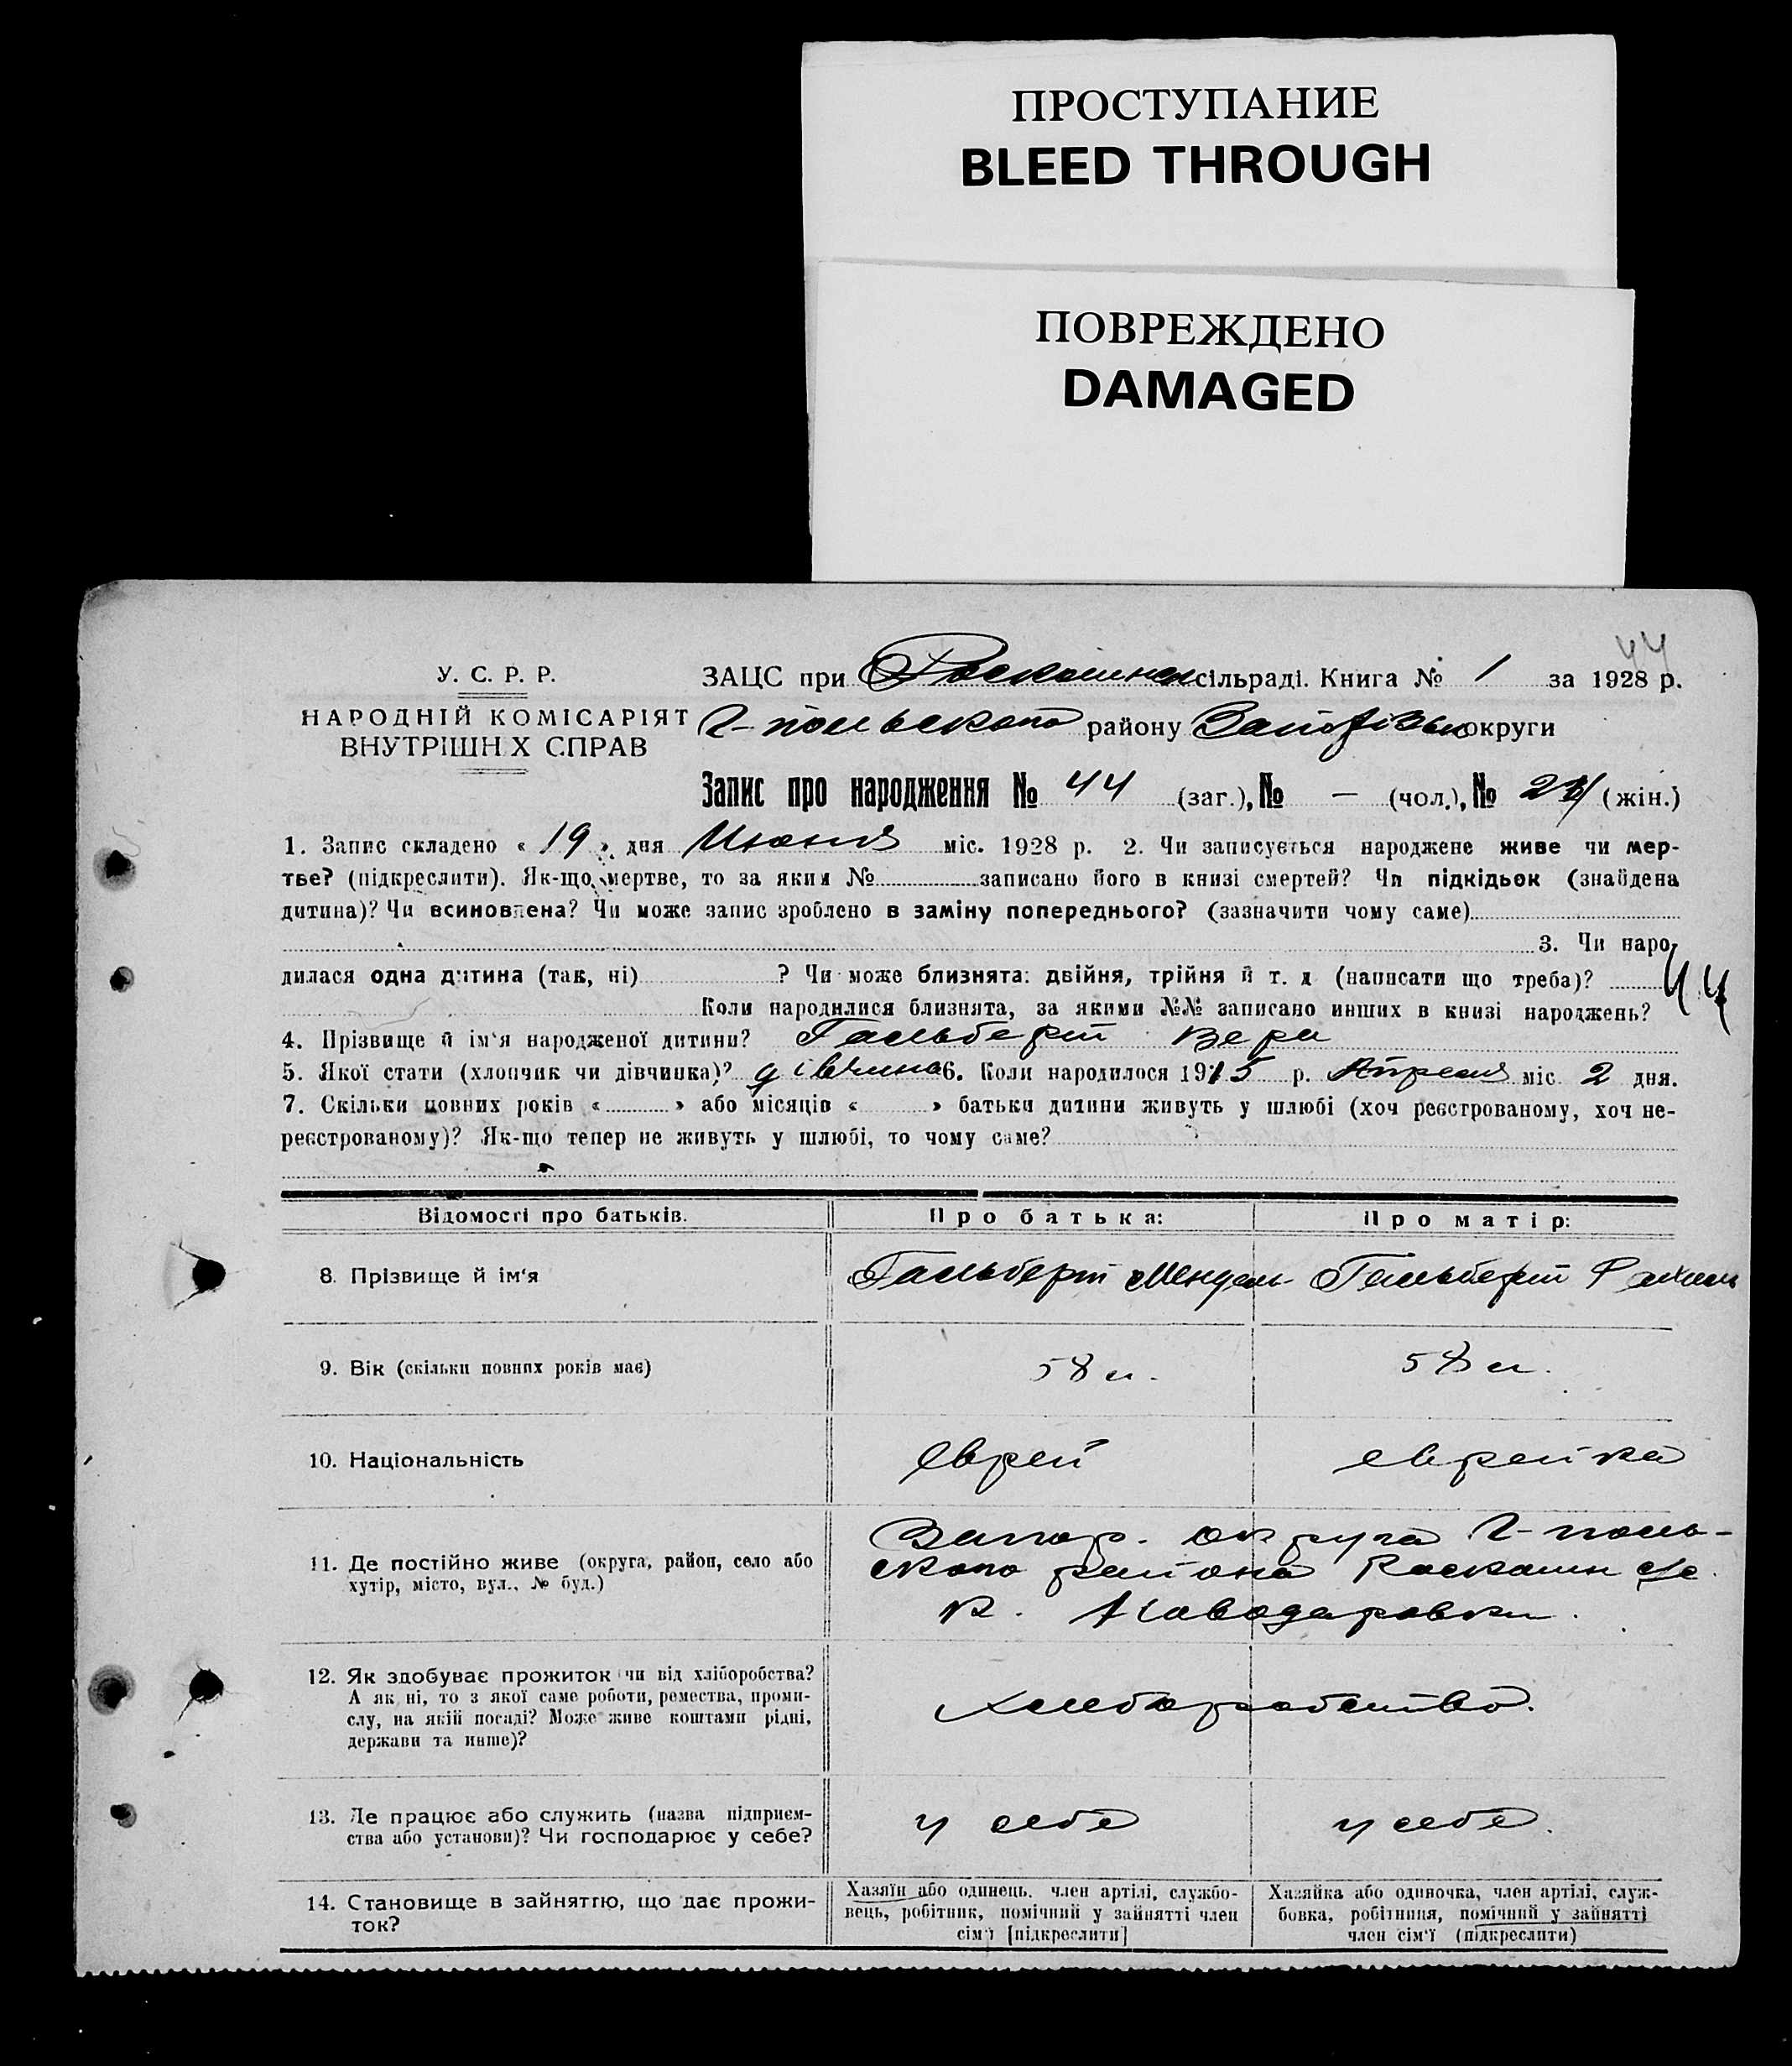 ПРОСТУПАНИЕ
BLEED THROUGH
ПОВРЕЖДЕНО
DAMAGED
44
У. С. Р. Р.
НАРОДНІЙ КОМІСАРІЯТ
ВНУТРІШНІХ СПРАВ
ЗАЦС при Роскошнен сільраді. Книга № 1 за 1928 р.
Г-польского району Запорізьк округи
Запис про народження № 44 (заг.), № — (чол.), № (жін.)
1. Запис складено « 19 » дня Июня міс. 1928 р. 2. Чи записується народжене живе чи мер-
тве? (підкреслити). Як-що мертве, то за яким № записано його в книзі смертей? Чи підкідьок (знайдена
дитина)? Чи всиновлена? Чи може запис зроблено в заміну попереднього? (зазначити чому саме)
3. Чи наро-
дилася одна дитина (так, ні) ? Чи може близнята: двійня, трійня й т. д (написати що треба)? 44
Коли народилися близнята, за якими №№ записано инших в книзі народжень?
4. Прізвище й ім'я народженої дитини? Гальберт Вера
5. Якої стати (хлопчик чи дівчинка)? дівчина 6. Коли народилося 1915 р. Апреля міс 2 дня.
7. Скільки повних років « » або місяців « » батьки дитини живуть у шлюбі (хоч реєстрованому, хоч не-
реєстрованому)? Як-що тепер не живуть у шлюбі, то чому саме?
Відомості про батьків. Про батька: Про матір:
8. Прізвище й ім'я Гальберт Мендель Гальберт Рахиль
9. Вік (скільки повних років має) 58 л. 58 л.
10. Національність Еврей еврейка
11. Де постійно живе (округа, район, село або
хутір, місто, вул., № буд.)
Запор. округа Г-поль-
ского района Роскошн с/с.
к. Новодаровки.
12. Як здобуває прожиток чи від хліборобства?
А як ні, то з якої саме роботи, ремества, проми-
слу, на якій посаді? Може живе коштами рідні,
держави та инше)?
хлеборобство.
13. Де працює або служить (назва підприєм-
ства або установи)? Чи господарює у себе?
у себе у себе.
14. Становище в зайняттю, що дає прожи-
ток?
Хазяїн або одинець. член артілі, службо-
вець, робітник, помічний у зайнятті член
сім'ї [підкреслити]
Хазяйка або одиночка, член артілі, служ-
бовка, робітниця, помічний у зайнятті
член сім'ї (підкреслити)